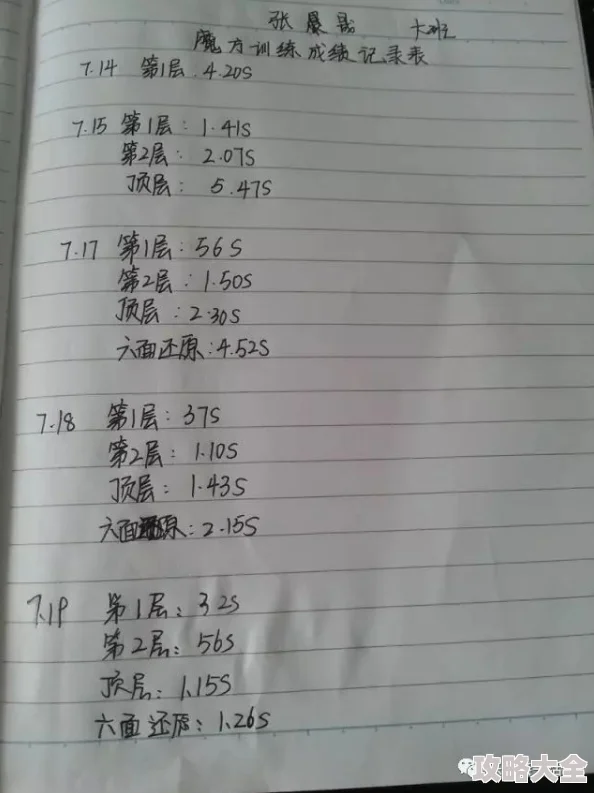 张晨晟 大班
魔方训练成绩记录表
7.14 第1层:4.20S
7.15 第1层:1.41S
第2层:2.07S
顶层:5.47S
7.17 第1层:56S
第2层:1.50S
顶层:2.30S
六面还原:4.52S
7.18 第1层:37S
第2层:1.10S
顶层:1.43S
六面还原:2.15S
7.19 第1层:32S
第2层:56S
顶层:1.15S
六面还原:1.26S
攻略大全